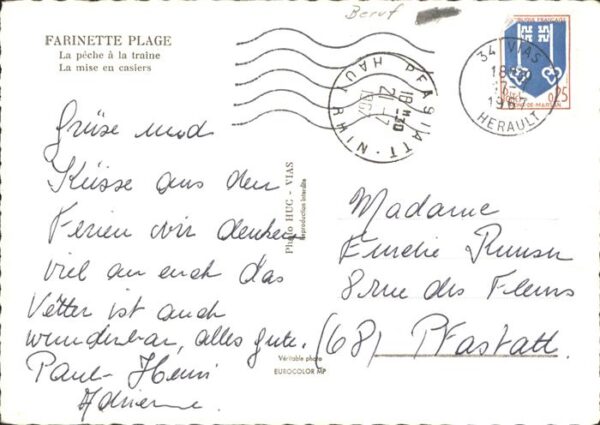 Beruf
FARINETTE PLAGE
La pêche à la traîne
La mise en casiers
PFASTATT
HAUT RHIN
18H30
21-7
1967
34 VIAS
18H
1967
HERAULT
RÉPUBLIQUE FRANÇAISE
0,25
MONT-DE-MARSAN
Grüse und
Küsse aus den
Ferien wir denken
viel an euch das
Vetter ist auch
wunderbar, alles gute.
Paul-Henri
Adrienne.
Photo HUC - VIAS
Reproduction interdite
Véritable photo
EUROCOLOR MP
Madame
Emelie
8 rue des Fleurs
(68) Pfastatt.